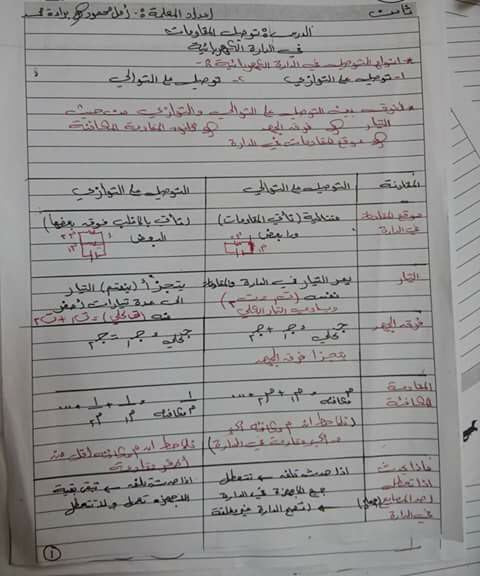 ثامن
إعداد المعلمة: أمل محمود برادة
الدرس: توصيل المقاومات
في الدارة الكهربائية
* أنواع التوصيل في الدارة الكهربائية :-
١- توصيل على التوازي ٢- توصيل على التوالي
* فارق بين التوصيل على التوالي والتوازي من حيث
التيار فرق الجهد قانون المقاومة المكافئة
موقع المقاومات في الدارة
المقارنة
التوصيل على التوالي
التوصيل على التوازي
موقع المقاومة
في الدارة
متتالية (تأتي المقاومات)
وراء بعض
م١
م٢
(تأتي بالأغلب فوق بعضها)
البعض
م٢
م١
التيار
يمر التيار في الدارة والمقاومة
نفسه (ت١ = ت٢)
ويساوي التيار الكلي
يتجزأ (ينقسم) التيار
إلى عدة تيارات أصغر
ت١ + ت٢
فرق الجهد
جـ كلي = جـ١ + جـ٢
يتجزأ فرق الجهد
جـ كلي = جـ١ = جـ٢
المقاومة
المكافئة
م مكافئة = م١ + م٢ + ....
(نلاحظ أن م مكافئة أكبر
من أكبر مقاومة في الدارة)
١/م مكافئة = ١/م١ + ١/م٢ + ....
نلاحظ أن م مكافئة أقل من
أصغر مقاومة
ماذا يحدث
إذا تعطل
أحد المصابيح
في الدارة
إذا حدث تلف ← تتعطل
جميع الأجهزة في الدارة
← (تصبح الدارة غير مغلقة
إذا حدث تلف ← تبقى بقية
الأجهزة تعمل ولا تتعطل
١